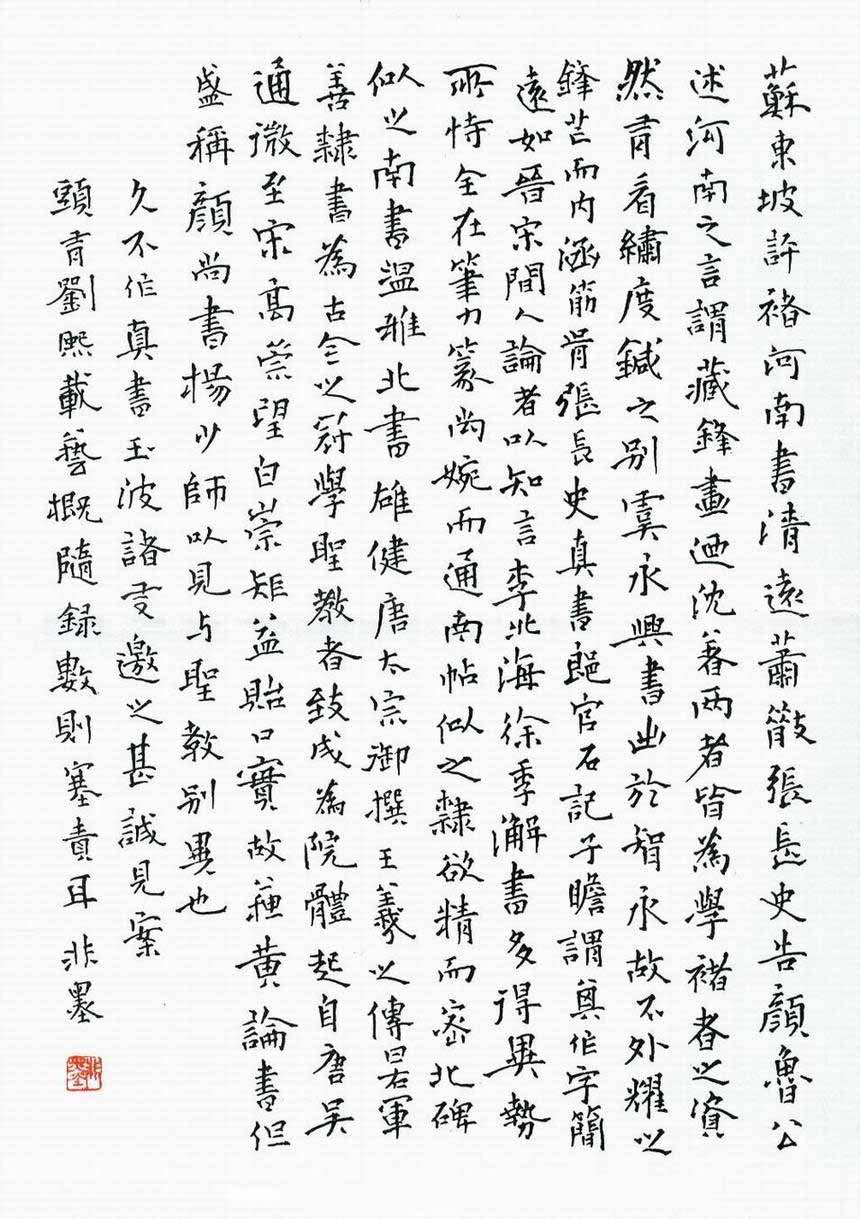 蘇東坡評褚河南書清遠蕭散張長史告顏魯公
述河南之言謂藏鋒畫迺沈著兩者皆為學褚者之資
然有看繡度鍼之別虞永興書出於智永故不外耀以
鋒芒而內涵筋骨張長史真書郎官石記子瞻謂其作字簡
遠如晉宋間人論者以知言李北海徐季海書多得異勢
所恃全在筆力篆尚婉而通南帖似之隸欲精而密北碑
似之南書溫雅北書雄健唐太宗御撰王羲之傳曰右軍
善隸書為古今之冠學聖教者致成為院體起自唐吳
通微至宋高崇望白崇矩益貽口實故蘇黃論書但
盛稱顏尚書楊少師以見与聖教別異也
久不作真書玉波諸友邀之甚誠見案
頭有劉熙載藝概隨錄數則塞責耳非墨
非墨